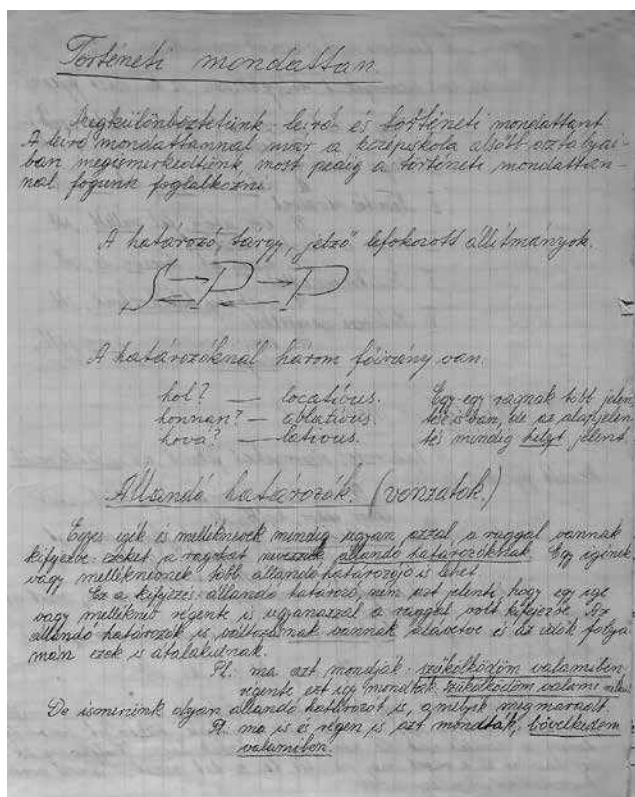 Történeti mondattan
Megkülönböztetünk leíró és történeti mondattant.
A leíró mondattannal már a középiskola alsóbb osztályai-
ban megismerkedtünk most pedig a történeti mondattan-
nal fogunk foglalkozni.
A határozó, tárgy, jelző lefokozott állítmányok.
S P P
A határozóknál három főirány van.
hol? — locativus. Egy-egy ragnak több jelen
honnan? — ablativus. tése is van, de az alapjelen
hová? — lativus. tés mindig helyt jelent.
Állandó határozók. (vonzatok.)
Egyes igék és melléknevek mindig ugyan azzal a raggal vannak
kifejezve ezeket a ragokat nevezzük állandó határozóknak. Egy igének
vagy melléknévnek több állandó határozója is lehet.
Ez a kifejezés: állandó határozó, nem azt jelenti, hogy egy ige
vagy melléknév régente is ugyanazzal a raggal volt kifejezve. Az
állandó határozók is változásnak vannak alávetve és az idők folya
mán ezek is átalakulnak.
Pl.: ma azt mondják: szűkölködöm valamiben
régente ezt így mondták szűkölködöm valami
De ismerünk olyan állandó határozót is, amelyik megmaradt.
Pl.: ma is és régen is azt mondták, bővelkedem
valamiben.